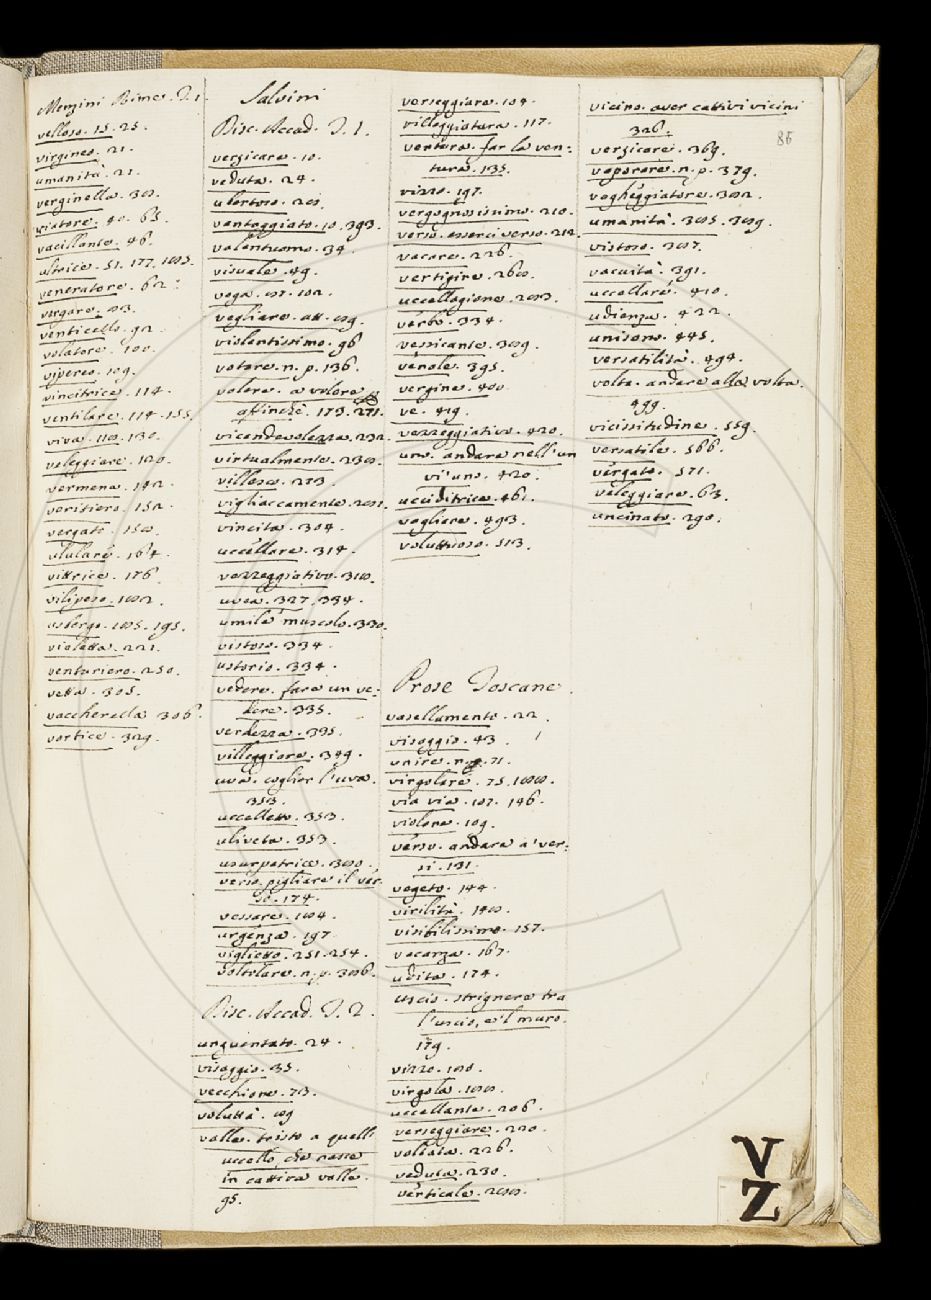 Menzini Rime. T. 1.
velloso. 15. 25.
virgineo. 21.
umanità. 21.
verginella. 30.
viatore. 40. 63.
vacillante. 46.
ultrice. 51. 177.
veneratore. 62.
vergare.
venticello. 92.
volatore. 100.
vipereo. 109.
vincitrice. 114.
ventilare. 114. 155.
viva. 130.
veleggiare. 120.
vermena. 142.
veritiero. 152.
vergato.
ululare. 164.
vittrice. 176.
vilipeso.
usbergo. 195.
violetta. 221.
venturiero. 250.
vetta. 305.
vaccherella 306.
vortice. 329.
Salvini
Disc. Accad. T. 1.
verzicare. 10.
veduta. 24.
ubertoso.
vantaggiato. 10. 393.
valentuomo. 34.
visuale. 49.
voga. 102.
vegliare. att.
violentissimo. 96
votare. n. p. 136.
volere. a volere
affinchè. 173. 271.
vicendevolezza. 232.
virtualmente. 230.
villoso. 273.
vigliaccamente.
vincita. 304.
uccellare. 314.
vezzeggiativo.
uvea. 327. 334.
umile muscolo. 330.
vistoso. 334.
ustorio. 334.
vedere. fare un ve:
dere. 335.
verdezza. 395.
villeggiare. 349.
uva. coglier l'uva.
353.
uccelletto. 353.
uliveta. 353.
usurpatrice.
verso. pigliare il ver:
so. 174.
vessare.
urgenza. 197.
viglietto. 251. 254.
voltolare. n. p.
Disc. Accad. T. 2.
unguentato. 24.
visaggio. 35.
vecchione. 73.
voluttà.
valle. tristo a quell'
uccello, che nasce
in cattiva valle.
95.
verseggiare. 104.
villeggiatura. 117.
ventura. far la ven:
tura. 135.
vizzo. 197.
vergognosissimo. 210.
verso. esserci verso. 212.
vacare. 226.
vertigine.
uccellagione.
verbo. 334.
vessicante. 309.
venale. 395.
vergine. 400.
ve. 419.
vezzeggiativo. 420.
uno. andare nell'un
vi'uno. 420.
ucciditrice. 461.
vagliare. 493.
voluttuoso. 513.
Prose Toscane.
vasellamento. 22.
visaggio. 43.
unire. n. p. 71.
virgolare. 75.
via via. 107. 146.
violone. 109.
verso. andare a' ver:
si. 131.
vegeto. 144.
virilità.
visibilissimo. 157.
vacanza. 167.
udita. 174.
uscio. strignere tra
l'uscio, e'l muro.
179.
vizzo.
virgola.
uccellante. 206.
verseggiare. 220.
voltata. 226.
veduta. 230.
verticale.
vicino. aver cattivi vicini
326.
verzicare. 369.
vaporare. n. p. 379.
vagheggiatore.
umanità. 305. 309.
vistoso. 307.
vacuità. 391.
uccellare. 410.
udienza. 422.
unisono. 445.
versatilità. 494.
volta. andare alla volta.
499.
vicissitudine. 559.
versatile. 566.
vergato. 571.
veleggiare. 63.
uncinato. 290.
86
V
Z